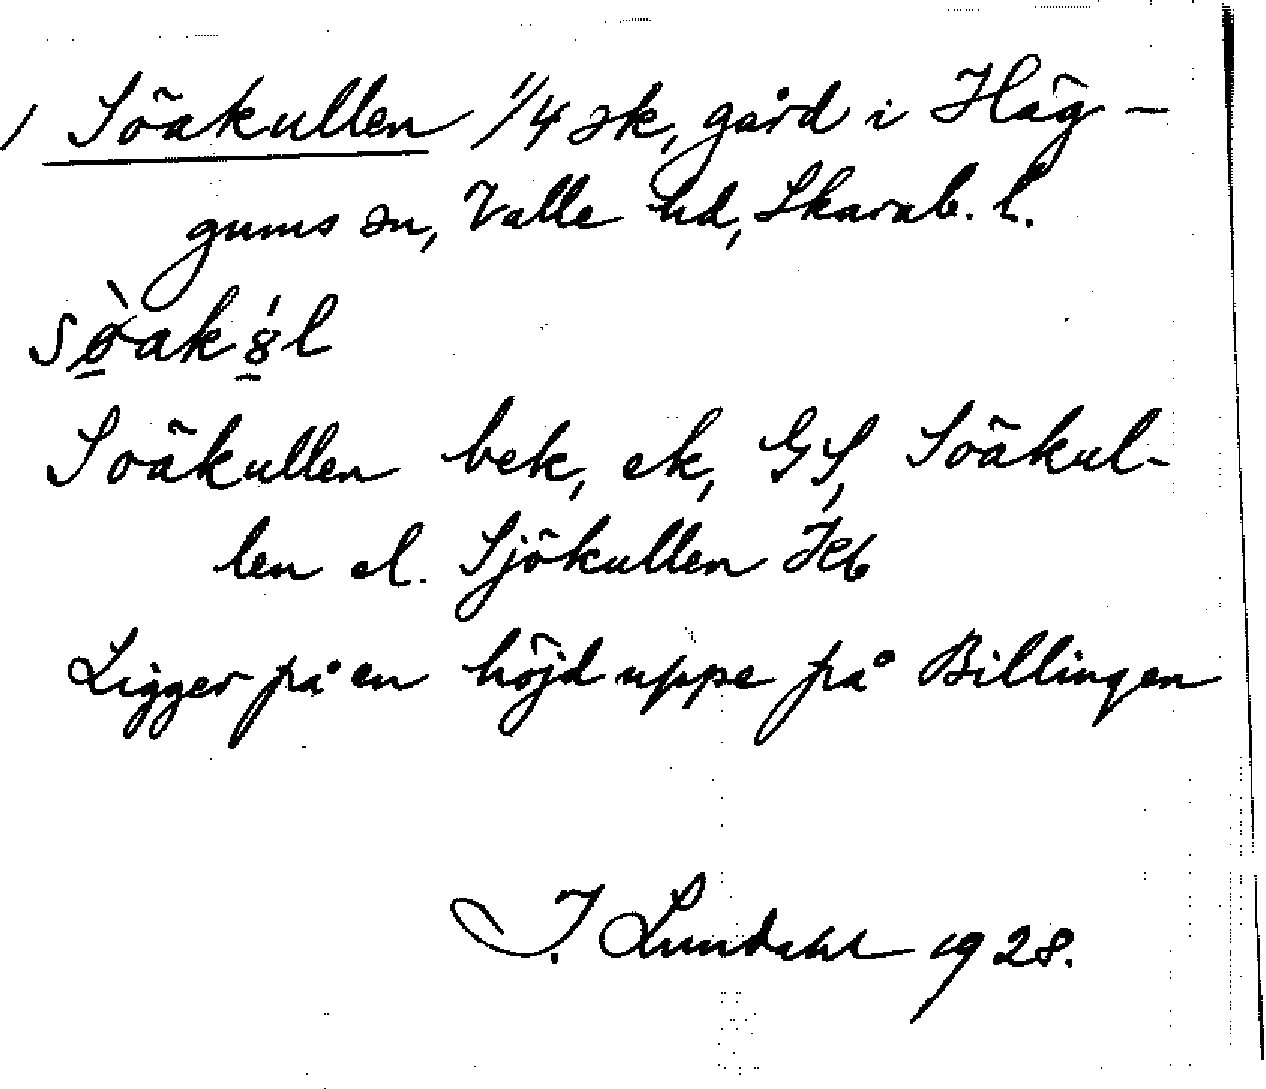 / Söakullen 1/4 sk, gård i Häg-
gums sn, Valle hd, Skarab. l.
Söäkullen bek, ek, GS, Söäkul-
len el. Sjökullen Hb
Ligger på en höjd uppe på Billingen
I. Lundahl 1928.